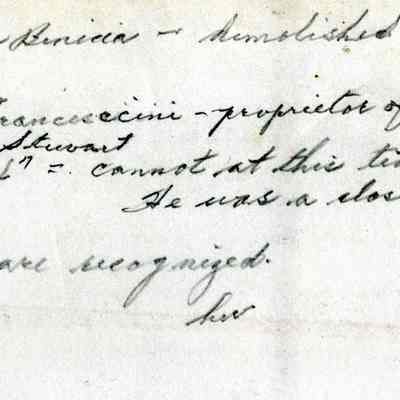 - Benicia - demolished
Francesccini - proprietor of
Stewart
" = cannot at this ti
He was a clos
are recognized.
hw